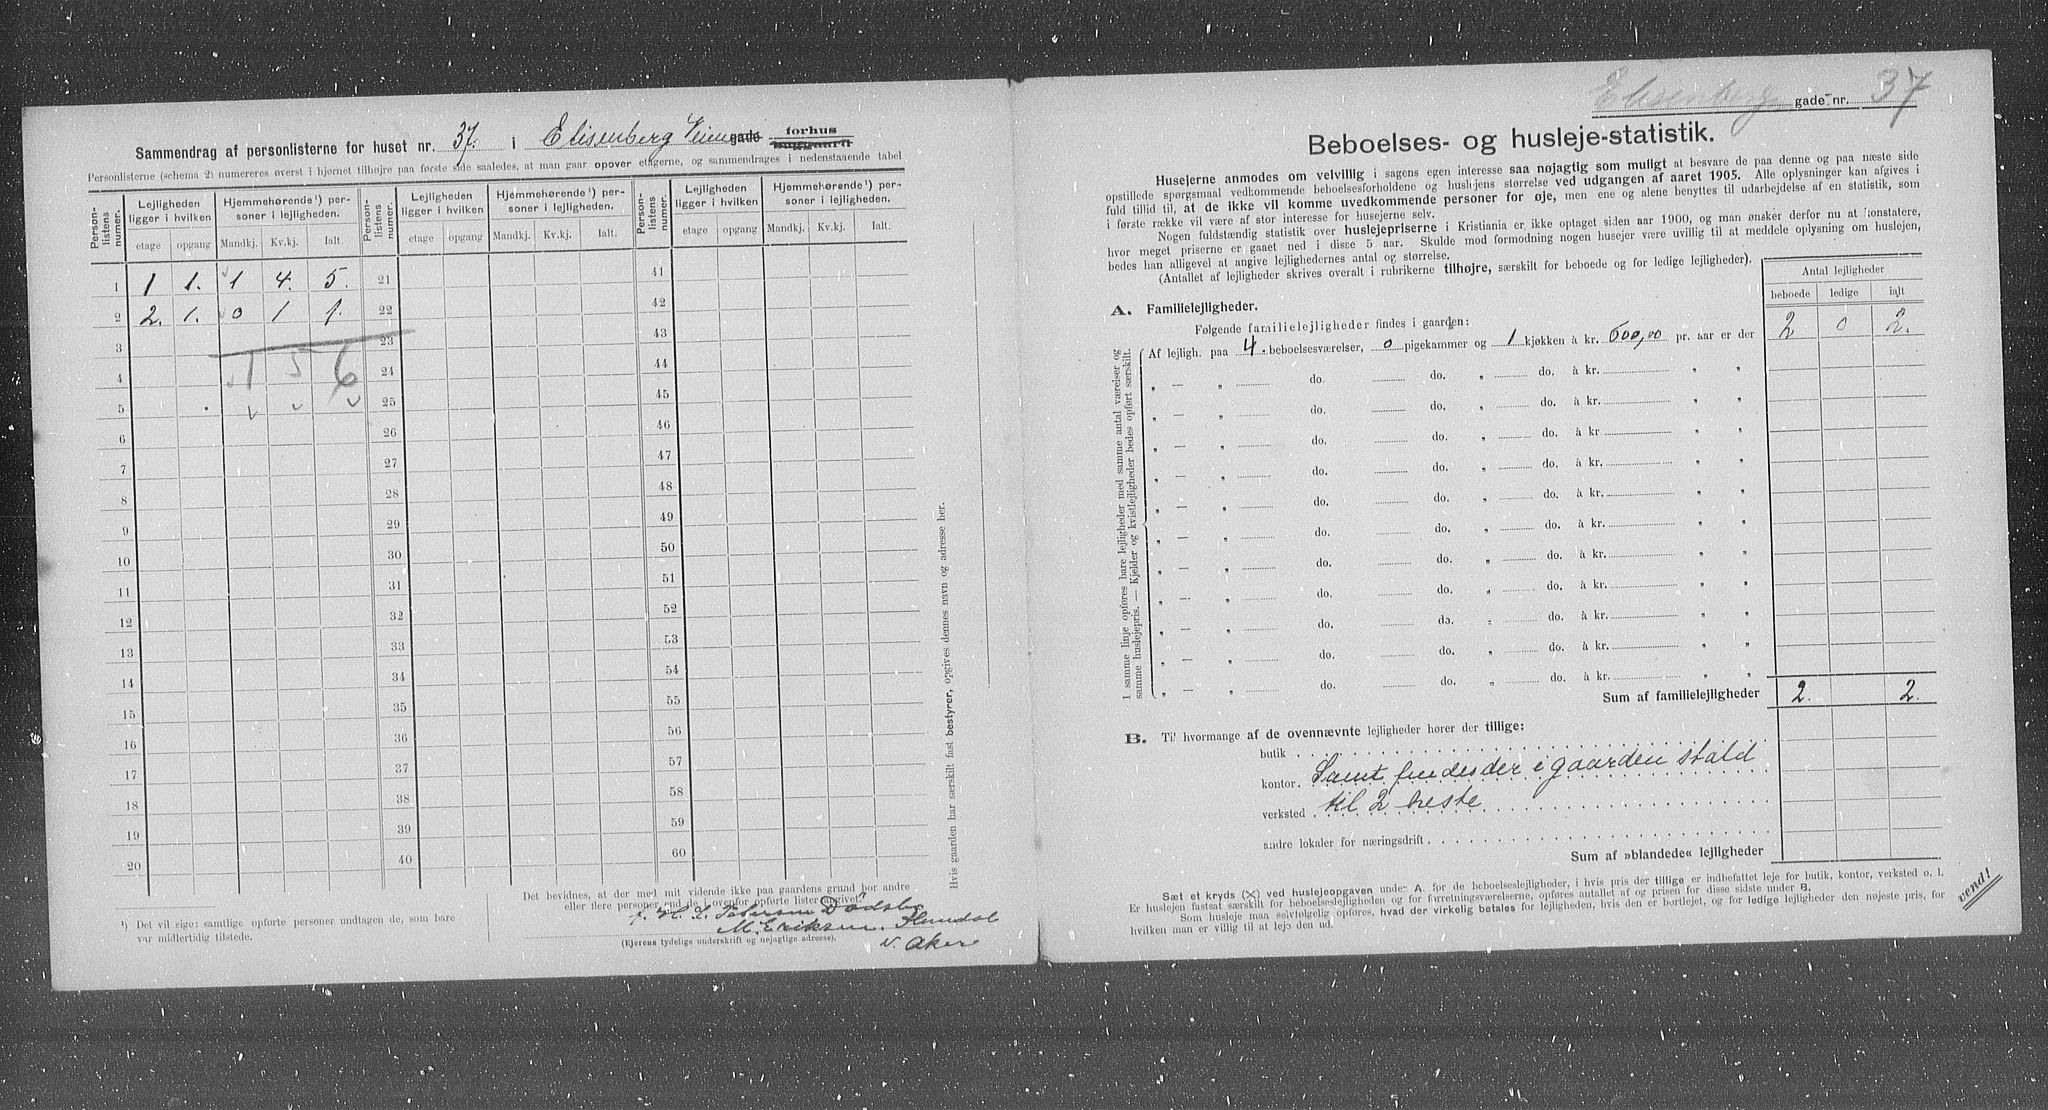 Sammendrag af personlisterne for huset nr. 37. i Elisenberg Veien gade forhus baggaard
Personlisterne (schema 2) numereres øverst i hjørnet tilhøjre paa første side saaledes, at man gaar opover etagerne, og sammendrages i nedenstaaende tabel
Person-listens numer. Lejligheden ligger i hvilken Hjemmehørende¹) personer i lejligheden. Person-listens numer. Lejligheden ligger i hvilken Hjemmehørende¹) personer i lejligheden. Person-listens numer. Lejligheden ligger i hvilken Hjemmehørende¹) personer i lejligheden.
etage opgang Mandkj. Kv.kj. Ialt. etage opgang Mandkj. Kv.kj. Ialt. etage opgang Mandkj. Kv.kj. Ialt.
1 1 1. 1 4. 5. 21 41
2 2. 1. 0 1 1. 22 42
3 23 43
4 1 5 6 24 44
5 25 45
6 26 46
7 27 47
8 28 48
9 29 49
10 30 50
11 31 51
12 32 52
13 33 53
14 34 54
15 35 55
16 36 56
17 37 57
18 38 58
19 39 59
20 40 60
¹) Det vil sige: samtlige opførte personer undtagen de, som bare var midlertidig tilstede.
Det bevidnes, at der med mit vidende ikke paa gaardens grund bor andre
eller flere personer end i ovenfor opførte lister angivet.
M. Eriksen.
(Ejerens tydelige underskrift og nøjagtige adresse).
v. Aker
Hvis gaarden har særskilt fast bestyrer, opgives dennes navn og adresse her.
Elisenberg gade nr. 37
Beboelses- og husleje-statistik.
Husejerne anmodes om velvillig i sagens egen interesse saa nøjagtig som muligt at besvare de paa denne og paa næste side
opstillede spørgsmaal vedkommende beboelsesforholdene og huslejens størrelse ved udgangen af aaret 1905. Alle oplysninger kan afgives i
fuld tillid til, at de ikke vil komme uvedkommende personer for øje, men ene og alene benyttes til udarbejdelse af en statistik, som
i første række vil være af stor interesse for husejerne selv.
Nogen fuldstændig statistik over huslejepriserne i Kristiania er ikke optaget siden aar 1900, og man ønsker derfor nu at konstatere,
hvor meget priserne er gaaet ned i disse 5 aar. Skulde mod formodning nogen husejer være uvillig til at meddele oplysning om huslejen,
bedes han alligevel at angive lejlighedernes antal og størrelse.
(Antallet af lejligheder skrives overalt i rubrikerne tilhøjre, særskilt for beboede og for ledige lejligheder).
Antal lejligheder
beboede ledige ialt
A. Familielejligheder.
Følgende familielejligheder findes i gaarden:
Af lejligh. paa 4. beboelsesværelser, 0 pigekammer og 1 kjøkken à kr. 600,00 pr. aar er der 2 0 2.
" — " do. do. " do. à kr. " "
" — " do. do. " do. à kr. " "
" — " do. do. " do. à kr " "
" — " do. do. " do. à kr. " "
" — " do. do. " do. à kr. " "
" — " do. do. " do. à kr. " "
" — " do. do. " do. à kr. " "
" — " do. do. " do. à kr. " "
" — " do. do. " do. à kr. " "
" — " do. do. " do. à kr. " "
" — " do. do. " do. à kr. " "
I samme linje opføres bare lejligheder med samme antal værelser og
samme huslejepris. — Kjelder og kvistlejligheder bedes opført særskilt.
Sum af familielejligheder 2. 2.
B. Til hvormange af de ovennævnte lejligheder hører der tillige:
butik
kontor. Samt findes der i gaarden stald
verksted til 2 heste
andre lokaler for næringsdrift
Sum af »blandede« lejligheder
Sæt et kryds (×) ved huslejeopgaven under A. for de beboelseslejligheder, i hvis pris der tillige er indbefattet leje for butik, kontor, verksted o. l.
Er huslejen fastsat særskilt for beboelseslejligheden og for forretningsværelserne, opføres antallet af og prisen for disse sidste under B.
Som husleje maa selvfølgelig opføres, hvad der virkelig betales for lejligheden, hvis den er bortlejet, og for ledige lejligheder den nøjeste pris, for
hvilken man er villig til at leje den ud.
vend!